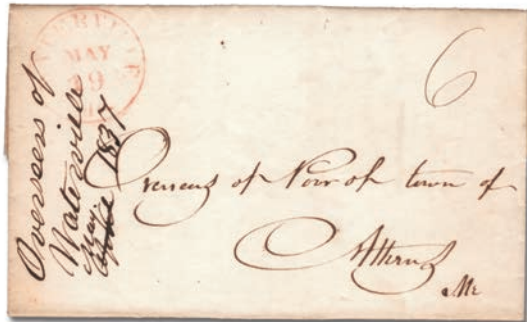 WATERVILLE
MAY
Me
6
Overseers of
Waterville
May 1837
Overseers of Poor of town of
Athens
Me